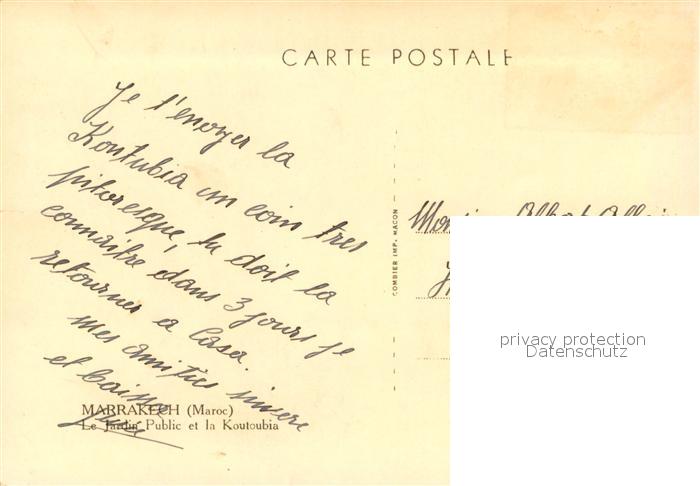 CARTE POSTALE
Je t'envoyer la
Koutubia un coin tres
pitoresque, tu doit la
connaitre dans 3 jours je
retourner a Casa.
mes amities sincere
et
MARRAKECH (Maroc)
Le Jardin Public et la Koutoubia
COMBIER IMP. MACON
privacy protection
Datenschutz